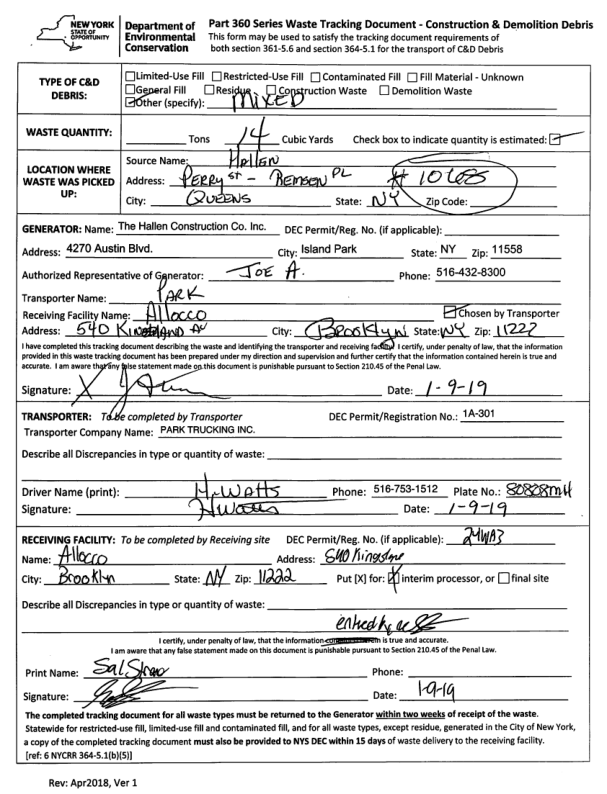 NEW YORK STATE OF OPPORTUNITY
Department of Environmental Conservation
Part 360 Series Waste Tracking Document - Construction & Demolition Debris
This form may be used to satisfy the tracking document requirements of
both section 361-5.6 and section 364-5.1 for the transport of C&D Debris
TYPE OF C&D DEBRIS:
Limited-Use Fill Restricted-Use Fill Contaminated Fill Fill Material - Unknown
General Fill Residue Construction Waste Demolition Waste
Other (specify): MIXED
WASTE QUANTITY: Tons 14 Cubic Yards Check box to indicate quantity is estimated:
LOCATION WHERE WASTE WAS PICKED UP:
Source Name: Hallen
Address: PERRY ST - REMSEN PL
City: QUEENS State: NY Zip Code:
GENERATOR: Name: The Hallen Construction Co. Inc. DEC Permit/Reg. No. (if applicable):
Address: 4270 Austin Blvd. City: Island Park State: NY Zip: 11558
Authorized Representative of Generator: JOE A. Phone: 516-432-8300
Transporter Name: PARK
Receiving Facility Name: Allocco Chosen by Transporter
Address: 540 KINGSLAND AV City: Brooklyn State: NY Zip: 11222
I have completed this tracking document describing the waste and identifying the transporter and receiving facility. I certify, under penalty of law, that the information
provided in this waste tracking document has been prepared under my direction and supervision and further certify that the information contained herein is true and
accurate. I am aware that any false statement made on this document is punishable pursuant to Section 210.45 of the Penal Law.
Signature: X Date: 1-9-19
TRANSPORTER: To be completed by Transporter DEC Permit/Registration No.: 1A-301
Transporter Company Name: PARK TRUCKING INC.
Describe all Discrepancies in type or quantity of waste:
Driver Name (print): H. WATTS Phone: 516-753-1512 Plate No.: 80808MH
Signature: H Watts Date: 1-9-19
RECEIVING FACILITY: To be completed by Receiving site DEC Permit/Reg. No. (if applicable): 24WA3
Name: Allocco Address: 540 Kingsland
City: Brooklyn State: NY Zip: 11222 Put [X] for: X interim processor, or final site
Describe all Discrepancies in type or quantity of waste:
I certify, under penalty of law, that the information herein is true and accurate.
I am aware that any false statement made on this document is punishable pursuant to Section 210.45 of the Penal Law.
Print Name: Sal Phone:
Signature: Date: 1-9-19
The completed tracking document for all waste types must be returned to the Generator within two weeks of receipt of the waste.
Statewide for restricted-use fill, limited-use fill and contaminated fill, and for all waste types, except residue, generated in the City of New York,
a copy of the completed tracking document must also be provided to NYS DEC within 15 days of waste delivery to the receiving facility.
[ref: 6 NYCRR 364-5.1(b)(5)]
Rev: Apr2018, Ver 1